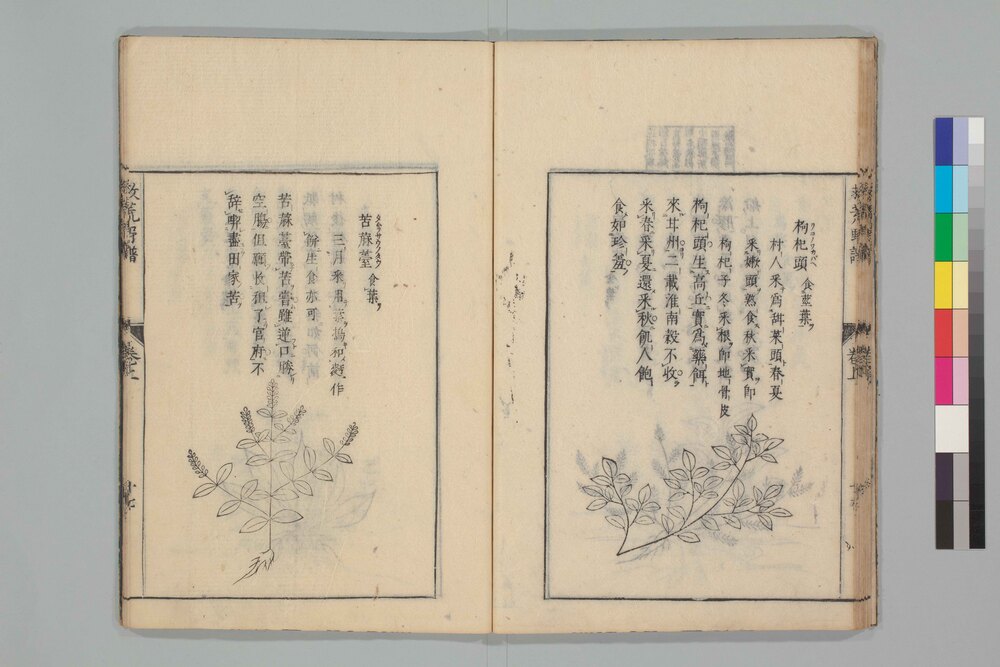 枸杞頭 食葉
村人采爲甜菜頭春夏
采嫩頭熟食秋采實即
枸杞子冬采根即地骨皮
枸杞頭生高丘實爲藥餌
來甘州二載淮南穀不收
采春采夏還采秋飢人飽
食如珍羞
救荒野譜
卷上
苦蔴薹 食葉
三月采用葉搗和麪作
餅生食亦可
苦蔴薹帶苦嘗雖逆口勝
空腸但願收租了官府不
辭喫盡田家苦
救荒野譜
卷上